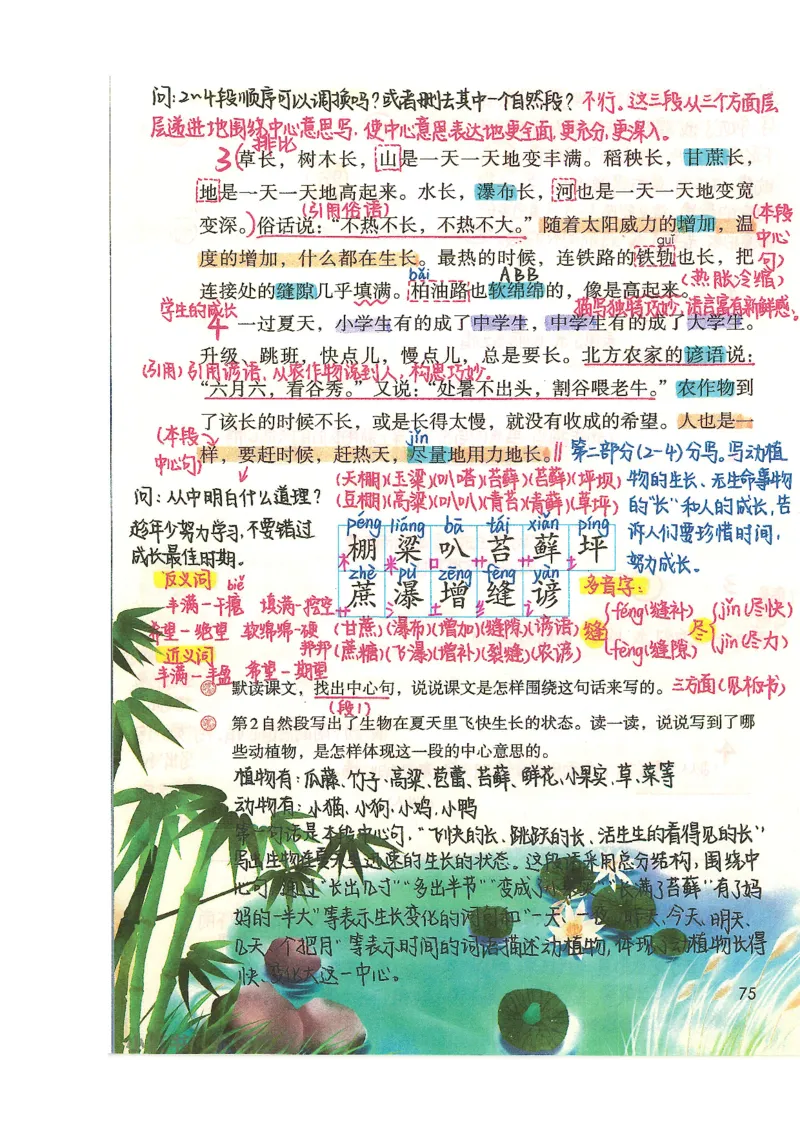 问:2~4段顺序可以调换吗?或者删去其中一个自然段?不行。这三段从三个方面层
层递进地围绕中心意思写,使中心意思表达地更全面,更充分,更深入。
排比
3(草长,树木长,山是一天一天地变丰满。稻秧长,甘蔗长,
地是一天一天地高起来。水长,瀑布长,河也是一天一天地变宽
(引用俗语)
变深。)俗话说:“不热不长,不热不大。”随着太阳威力的增加,温
(本段中心句)
guǐ
度的增加,什么都在生长。最热的时候,连铁路的铁轨也长,把
bǎi ABB (热胀冷缩)
连接处的缝隙几乎填满。柏油路也软绵绵的,像是高起来。
学生的成长 描写独特巧妙,语言富有新鲜感。
4 一过夏天,小学生有的成了中学生,中学生有的成了大学生。
升级、跳班,快点儿,慢点儿,总是要长。北方农家的谚语说:
(引用)引用谚语,从农作物说到人,构思巧妙。
“六月六,看谷秀。”又说:“处暑不出头,割谷喂老牛。”农作物到
了该长的时候不长,或是长得太慢,就没有收成的希望。人也是一
(本段中心句) jǐn
样,要赶时候,赶热天,尽量地用力地长。‖第二部分(2-4)分写。写动植
物的生长、无生命事物
的“长”和人的成长,告
诉人们要珍惜时间,
努力成长。
问:从中明白什么道理?
趁年少努力学习,不要错过
成长最佳时期。
(天棚)(玉粱)(叭嗒)(苔藓)(苔藓)(坪坝)
(豆棚)(高粱)(叭叭)(青苔)(青藓)(草坪)
péng liáng bā tái xiǎn píng
棚 粱 叭 苔 藓 坪
木 米 口 艹 艹 土
zhè pù zēng fèng yàn
蔗 瀑 增 缝 谚
艹 氵 土 纟 讠
(甘蔗)(瀑布)(增加)(缝隙)(谚语)
(蔗糖)(飞瀑)(增补)(裂缝)(农谚)
反义词
biě
丰满一干瘪 填满一挖空
希望一绝望 软绵绵一硬邦邦
近义词
丰满一丰盈 希望一期望
多音字:
缝{féng(缝补) fèng(缝隙)
尽{jǐn(尽快) jìn(尽力)
默读课文,找出中心句,说说课文是怎样围绕这句话来写的。三方面(见板书)
(段1)
第2自然段写出了生物在夏天里飞快生长的状态。读一读,说说写到了哪
些动植物,是怎样体现这一段的中心意思的。
植物有:瓜藤、竹子、高粱、芭蕾、苔藓、鲜花、小果实、草、菜等
动物有:小猫、小狗、小鸡、小鸭
第一句话是本段中心句,“飞快的长、跳跃的长、活生生的看得见的长”
写出生物在夏天里迅速的生长的状态。这段话采用总分结构,围绕中
心句,通过“长出几寸”“多出半节”“变成了”“长满了苔藓”“有了妈
妈的一半大”等表示生长变化的词句和“一天、一夜、昨天、今天、明天、
几天、个把月”等表示时间的词语描述动植物,体现了动植物长得
快、变化大这一中心。
75